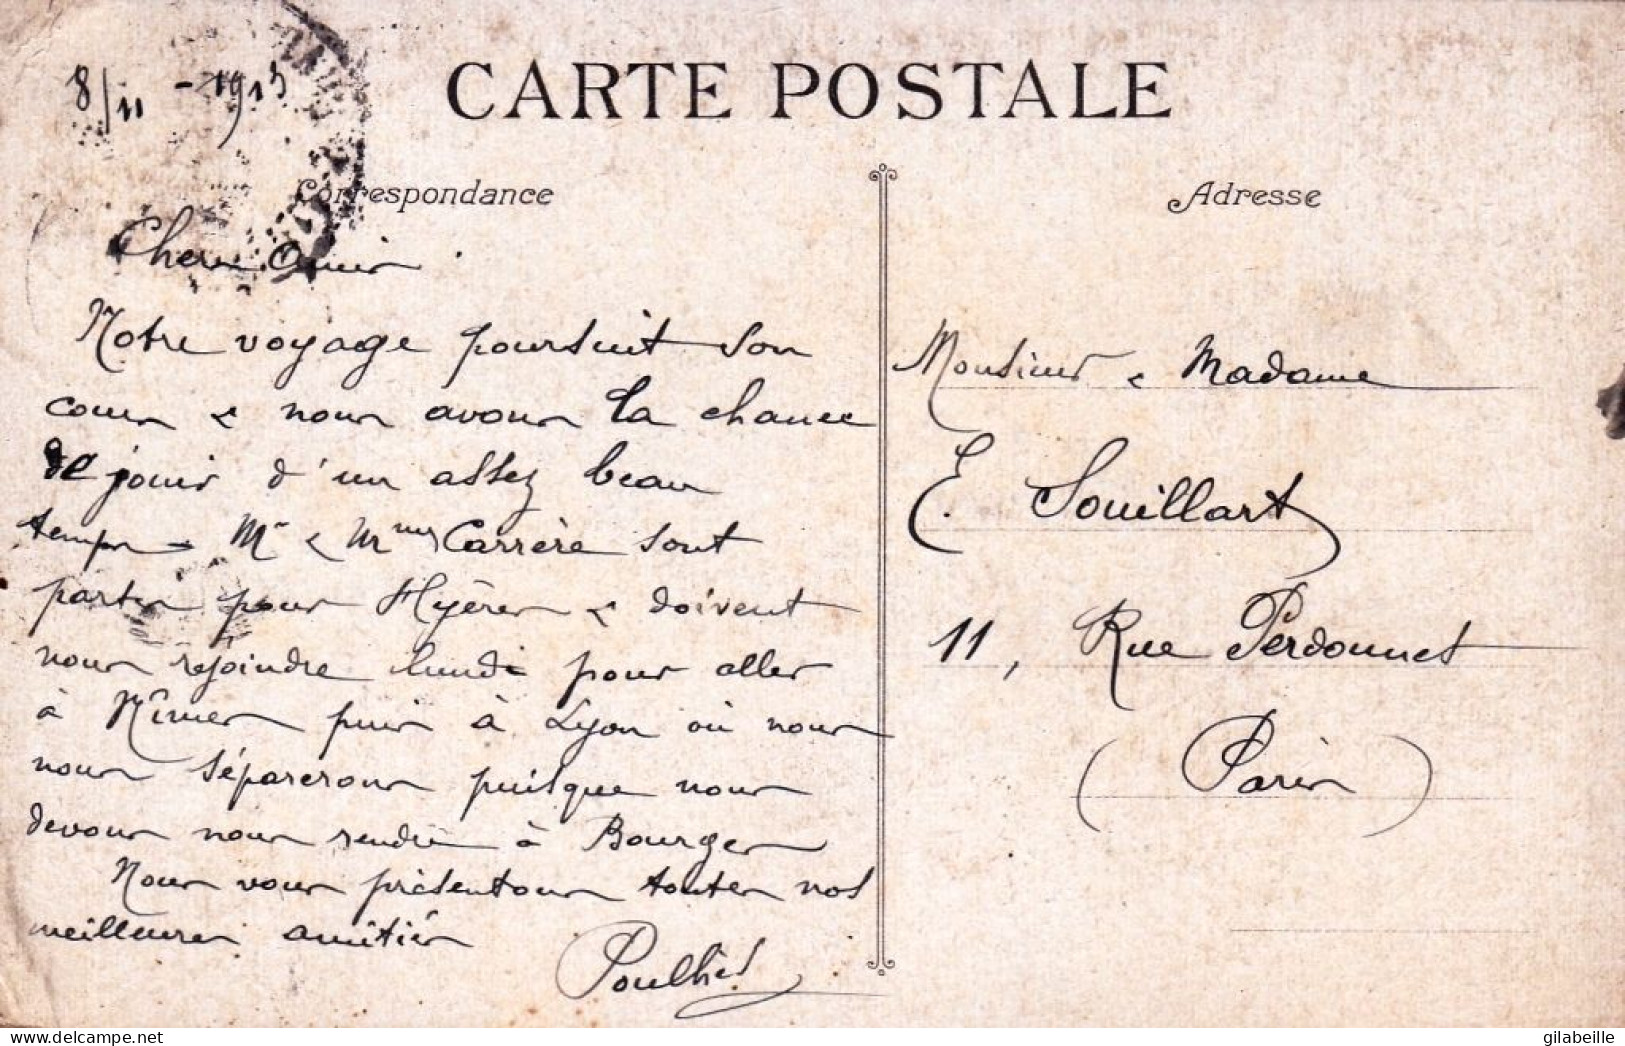 8/11 - 1913
CARTE POSTALE
Correspondance
Chers Amis
Notre voyage poursuit son
cours & nous avons la chance
de jouir d'un assez beau
temps - Mr & Mme Carrère sont
partis pour Hyères & doivent
nous rejoindre lundi pour aller
à Nîmes puis à Lyon où nous
nous séparerons puisque nous
devons nous rendre à Bourges
Nous vous présentons toutes nos
meilleures amitiés
Adresse
Monsieur & Madame
E. Souillart
11, Rue Perdonnet
(Paris)
delcampe.net
gilabeille